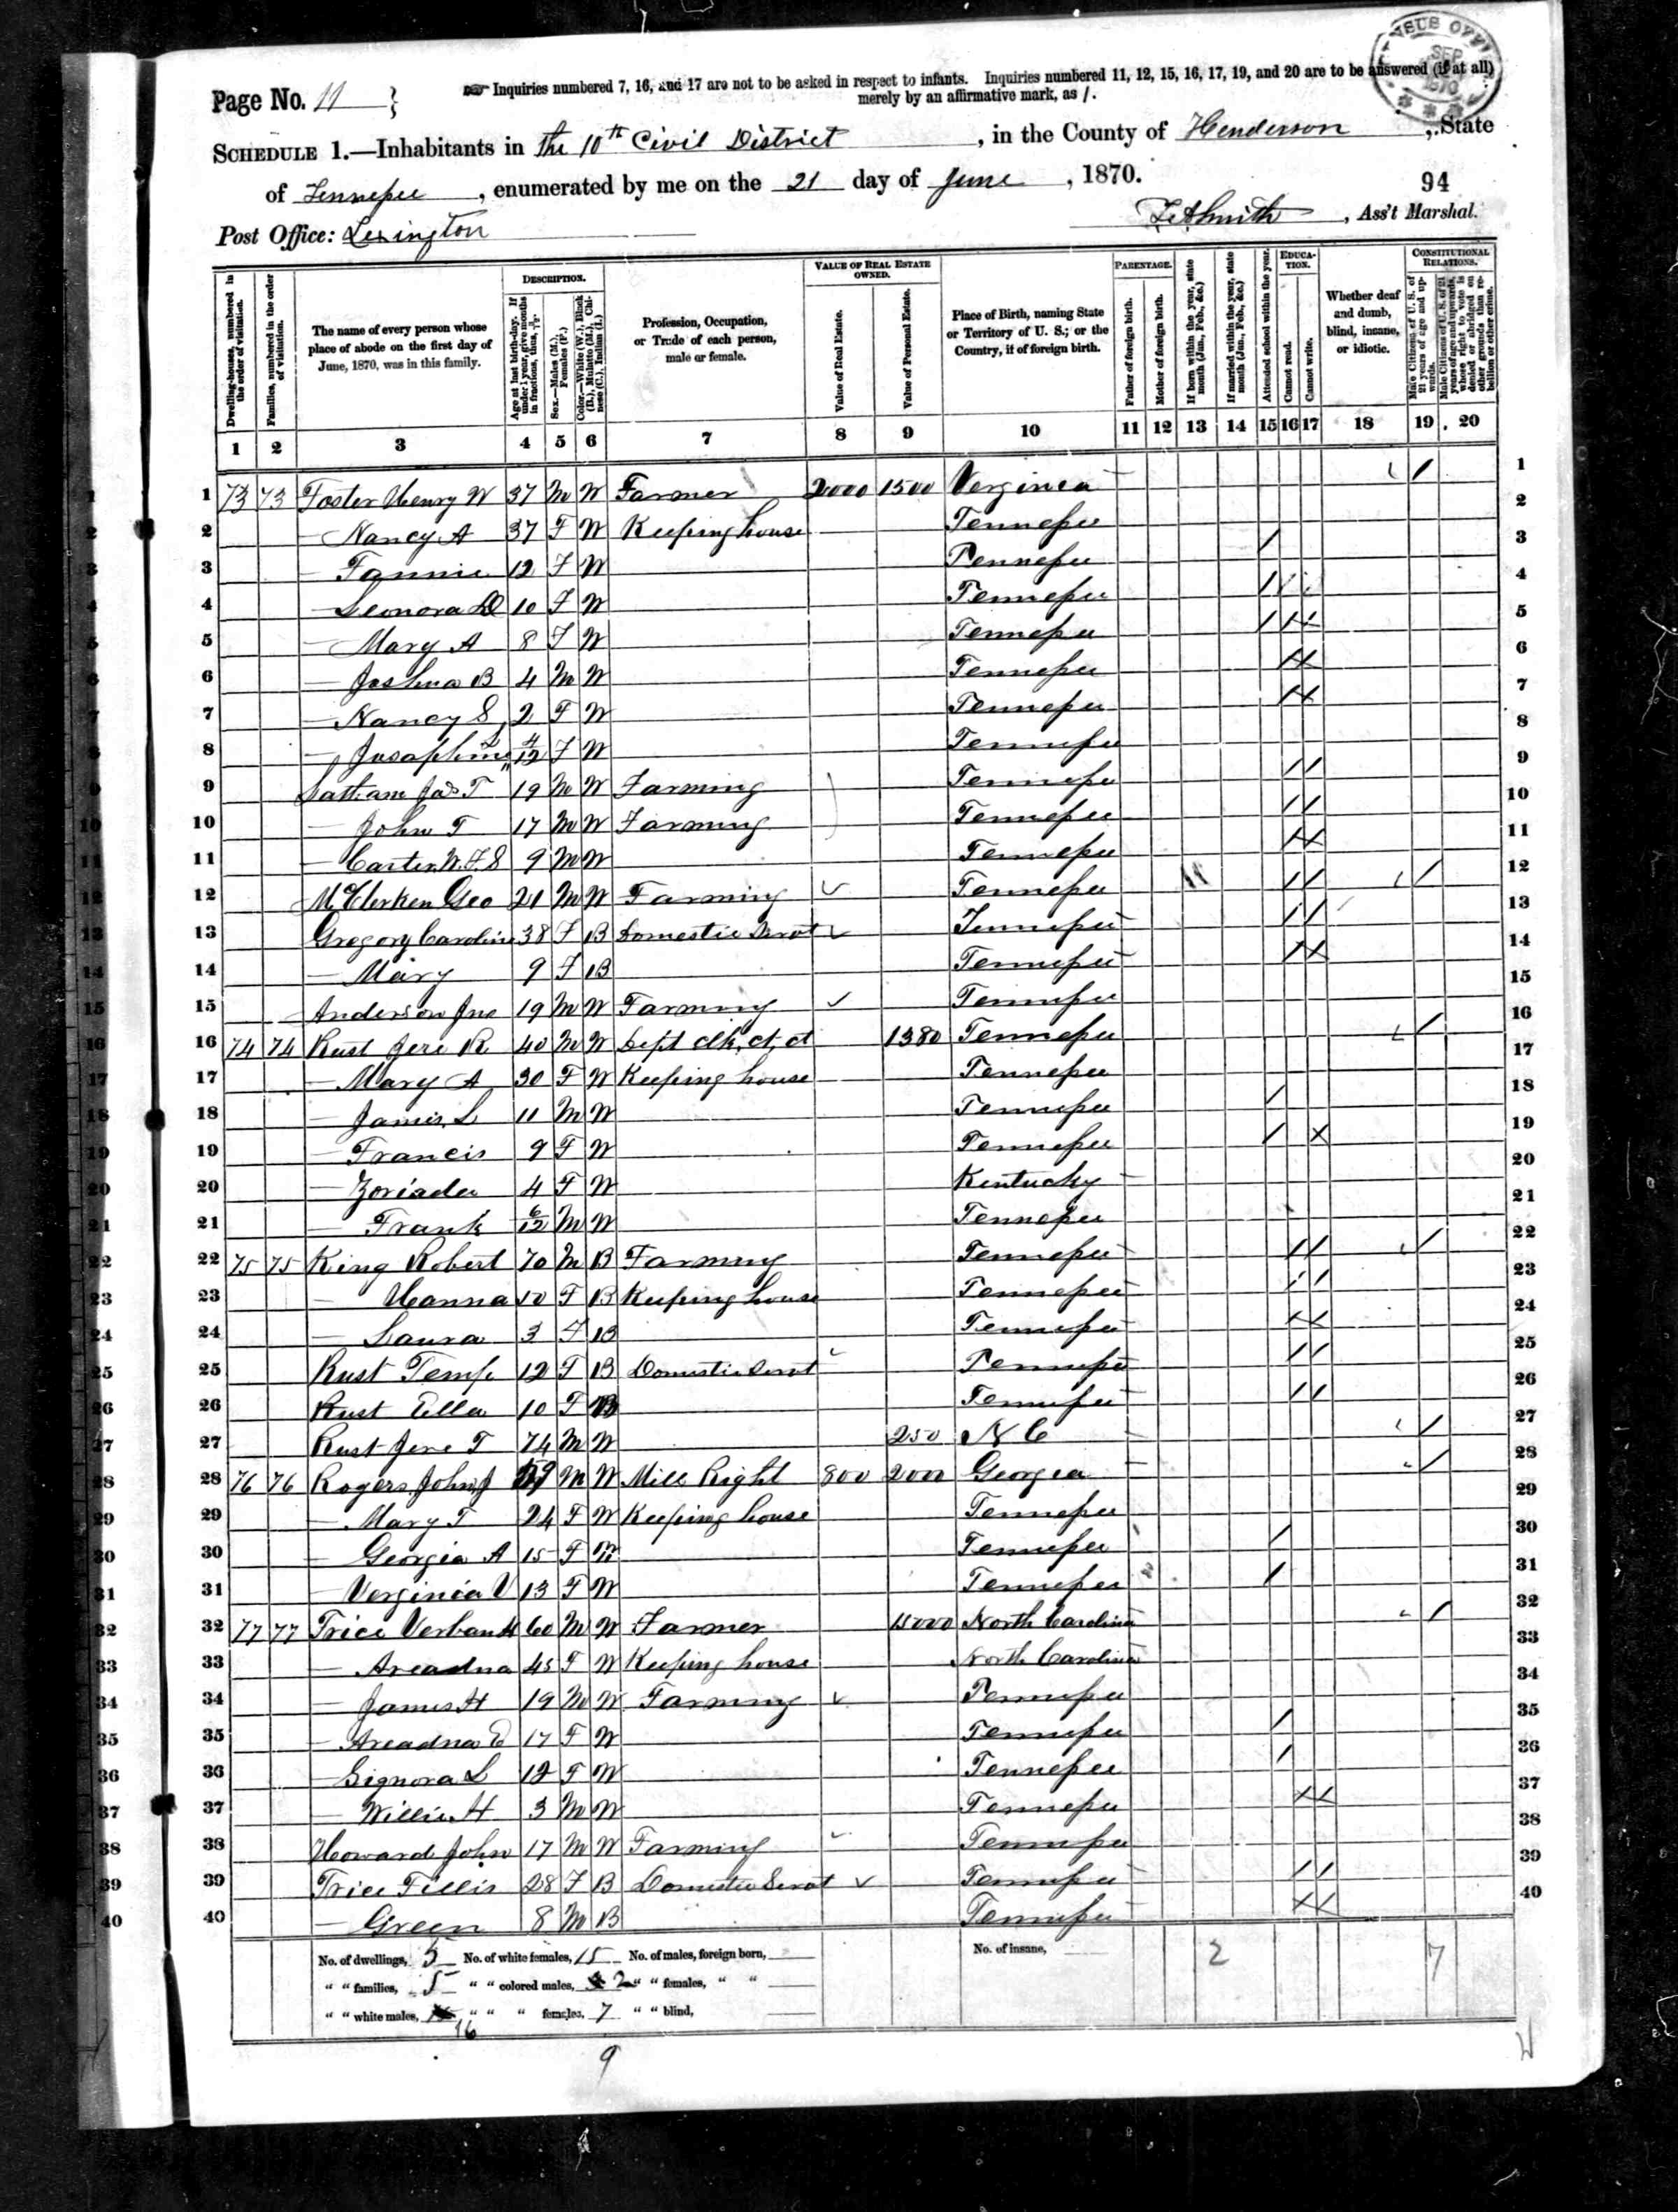 Page No. 11
Inquiries numbered 7, 16, and 17 are not to be asked in respect to infants. Inquiries numbered 11, 12, 15, 16, 17, 19, and 20 are to be answered (if at all) merely by an affirmative mark, as /.
SCHEDULE 1.—Inhabitants in the 10th Civil District, in the County of Henderson, State
of Tennessee, enumerated by me on the 21 day of June, 1870.
94
Post Office: Lexington
Smith, Ass't Marshal.
DESCRIPTION.
VALUE OF REAL ESTATE OWNED.
PARENTAGE.
EDUCATION.
CONSTITUTIONAL RELATIONS.
Dwelling-houses, numbered in the order of visitation.
Families, numbered in the order of visitation.
The name of every person whose place of abode on the first day of June, 1870, was in this family.
Age at last birth-day. If under 1 year, give months in fractions, thus, 3/12.
Sex.—Males (M.), Females (F.)
Color.—White (W.), Black (B.), Mulatto (M.), Chinese (C.), Indian (I.)
Profession, Occupation, or Trade of each person, male or female.
Value of Real Estate.
Value of Personal Estate.
Place of Birth, naming State or Territory of U. S.; or the Country, if of foreign birth.
Father of foreign birth.
Mother of foreign birth.
If born within the year, state month (Jan., Feb., &c.)
If married within the year, state month (Jan., Feb., &c.)
Attended school within the year.
Cannot read.
Cannot write.
Whether deaf and dumb, blind, insane, or idiotic.
Male Citizens of U. S. of 21 years of age and upwards.
Male Citizens of U. S. of 21 years of age and upwards, whose right to vote is denied or abridged on other grounds than rebellion or other crime.
1 2 3 4 5 6 7 8 9 10 11 12 13 14 15 16 17 18 19 20
1 73 73 Foster Henry W 37 M W Farmer 2000 1500 Verginia / 1
2 — Nancy A 37 F W Keeping house Tennessee 2
3 — Fannie 12 F W Tennessee / 3
4 — Leonora D 10 F W Tennessee / / / 4
5 — Mary A 8 F W Tennessee / / / 5
6 — Joshua B 4 M W Tennessee 6
7 — Nancy S 2 F W Tennessee 7
8 — Josaphine 4/12 F W Tennessee 8
9 Jas T 19 M W Farming Tennessee / / 9
10 — John T 17 M W Farming Tennessee / / 10
11 — Carter W. F. S 9 M W Tennessee 11
12 Geo 21 M W Farming Tennessee / / / 12
13 Gregory Caroline 38 F B Domestic Servt Tennessee / / 13
14 — Mary 9 F B Tennessee 14
15 Anderson Jno 19 M W Farming Tennessee 15
16 74 74 Rust Jere R 40 M W Dept clk, ct, ct 1380 Tennessee / 16
17 — Mary A 30 F W Keeping house Tennessee 17
18 — James L 11 M W Tennessee / 18
19 — Francis 9 F W Tennessee / X 19
20 — Zoriada 4 F W Kentucky 20
21 — Frank 6/12 M W Tennessee 21
22 75 75 King Robert 70 M B Farming Tennessee / / / 22
23 — Hanna 50 F B Keeping house Tennessee / / 23
24 — Laura 3 F B Tennessee 24
25 Rust Temp 12 F B Domestic Servt Tennessee / / 25
26 Rust Ella 10 F B Tennessee / / 26
27 Rust Jere T 74 M W 250 N C / 27
28 76 76 Rogers John J 59 M W Mill Right 800 2000 Georgia / 28
29 — Mary T 24 F W Keeping house Tennessee 29
30 — Georgia A 15 F W Tennessee / 30
31 — Verginia V 13 F W Tennessee / 31
32 77 77 Trice Verban H 60 M W Farmer North Carolina / 32
33 — Areadna 45 F W Keeping house North Carolina 33
34 — James H 19 M W Farming Tennessee 34
35 — Areadna E 17 F W Tennessee / 35
36 — Signora L 12 F W Tennessee / 36
37 — Willie H 3 M W Tennessee 37
38 Howard John 17 M W Farming Tennessee 38
39 Trice Fillis 28 F B Domestic Servt Tennessee / / 39
40 — Green 8 M B Tennessee 40
No. of dwellings, 5 No. of white females, 15 No. of males, foreign born, No. of insane, 2 7
" " families, 5 " " colored males, 2 " " females, " "
" " white males, 16 " " " females, 7 " " blind,
9